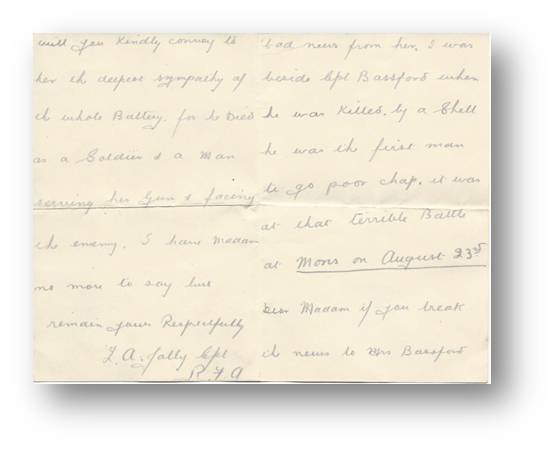 bad news from her. I was
beside Cpl Bassford when
he was killed. by a Shell
he was the first man
to go poor chap. it was
at that terrible Battle
at Mons on August 23rd
Dear Madam if you break
the news to Mrs Bassford
will you kindly convey to
her the deepest sympathy of
the whole Battery. for he died
as a Soldier & a Man
serving her Gun & facing
the enemy. I have Madam
no more to say but
remain yours Respectfully
Cpl
R.F.A